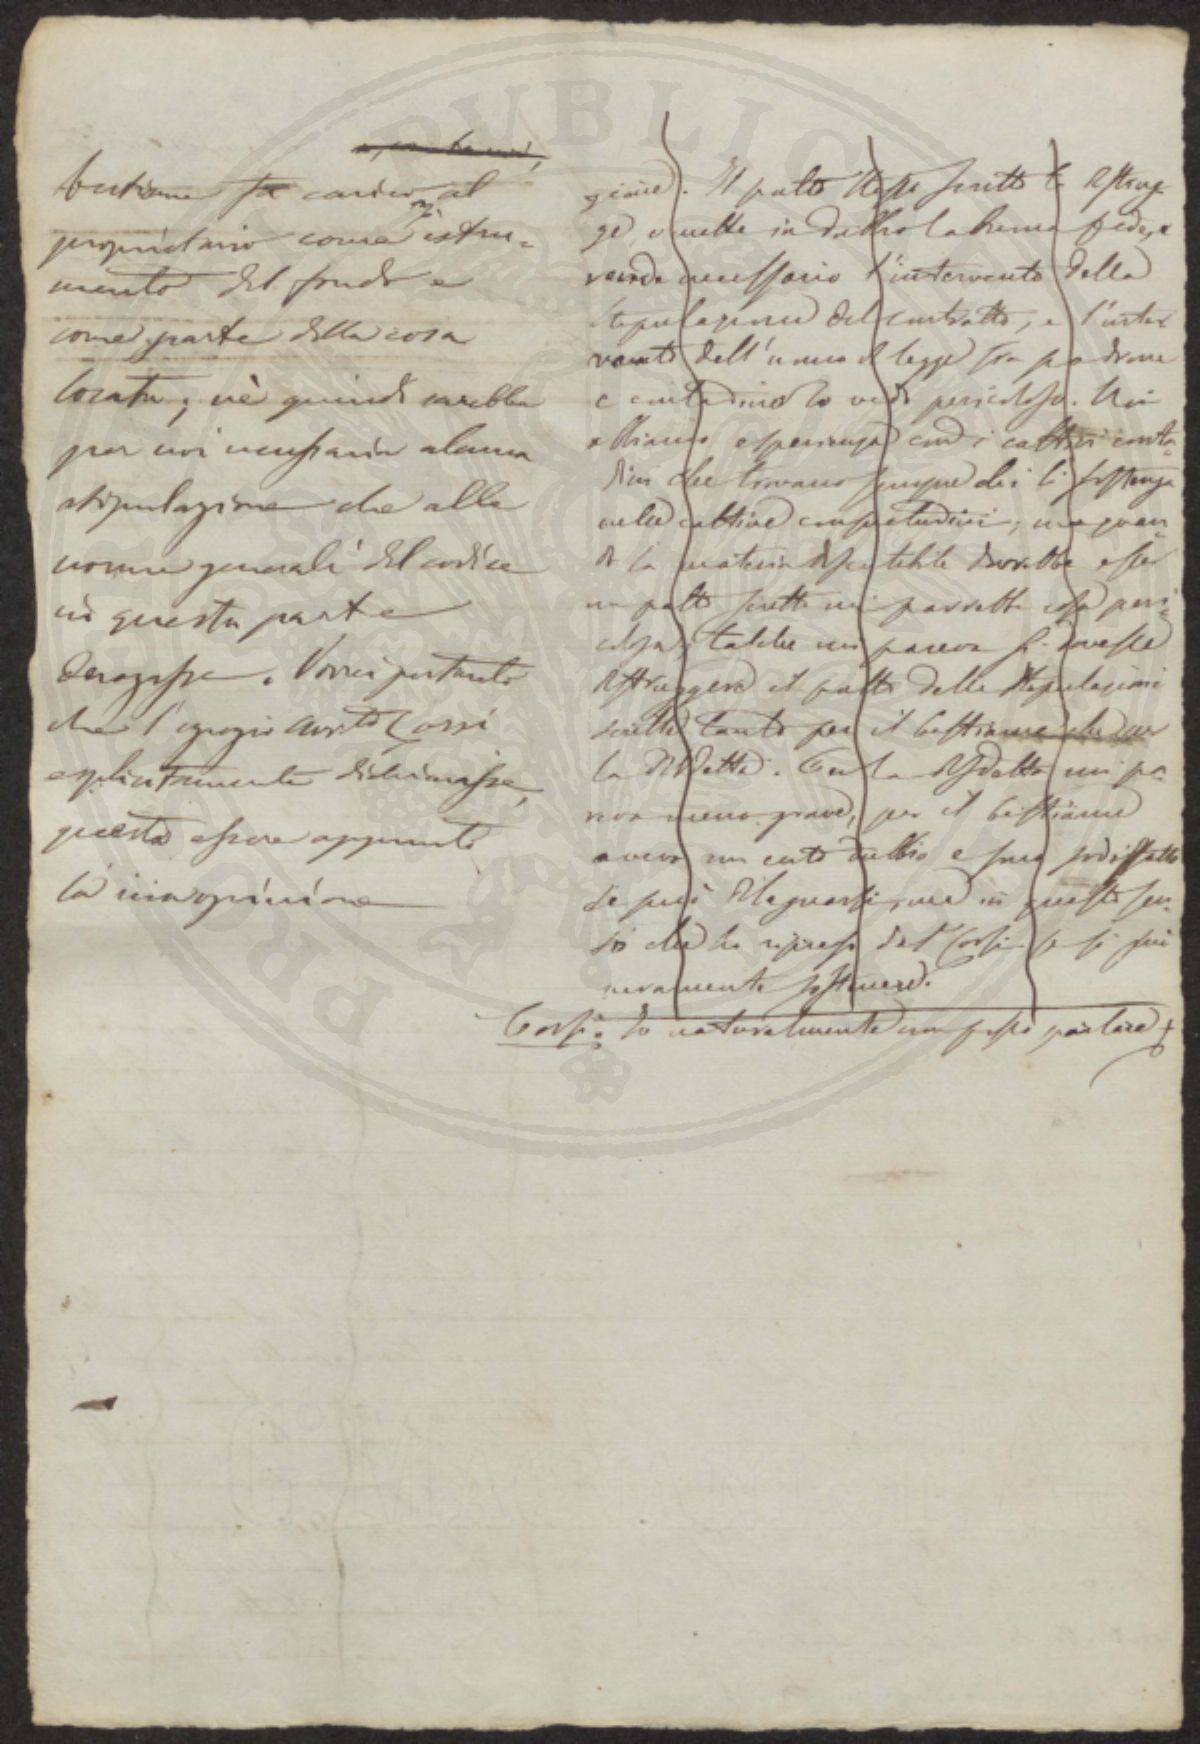 bestiame fa carico al
proprietario come istru=
mento del fondo e
come parte della cosa
locata, nè quindi sarebbe
per noi necessaria alcuna
stipulazione che alle
norme generali del codice
in questa parte
derogasse. Vorrei pertanto
che l'egregio avvto Corsi
esplicitamente dichiarasse,
questa essere appunto
la sua opinione
gione). Il patto stesso scritto lo distrug
ge, o mette in dubbio la buona fede, e
rende necessario l'intervento della
stipulazione del contratto, e l'inter
vento dell'uomo di legge fra padrone
e contadino lo vedo pericoloso. Noi
abbiamo esperienza con i cattivi conta=
dini che trovano sempre chi li sostenga
nelle cattive consuetudini; ma quan
do la materia discutibile dovrebbe esser
un patto scritto mi parrebbe cosa peri=
colosa, talchè mi pareva si dovesse
distruggere il patto delle stipulazioni
scritte tanto per il bestiame che per
la disdetta. Con la disdetta mi pa=
reva meno grave, per il bestiame
avevo un certo dubbio e
se può dileguarsi, ma in questo sen=
so che ha ripreso dal Corsi se si può
veramente sostenere.
Corsi: Io naturalmente non posso parlare